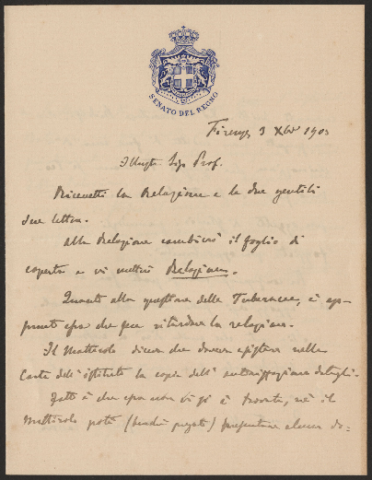 SENATO DEL REGNO
Firenze 3 Xbre 1903
Illustre Sig. Prof.
Ricevetti la Relazione e le due gentili
sue lettere.
Alla Relazione cambierò il foglio di
coperta e vi metterò Relazione.
Quanto alla questione delle Tuberacee, è ap-
punto essa che fece ritardare la relazione.
Il Mattirolo diceva che doveva esistere nelle
Carte dell'istituto la copia dell'autorizzazione
Fatto è che essa non vi si è trovata, nè il
Mattirolo potè (benchè pregato) presentare alcun do-